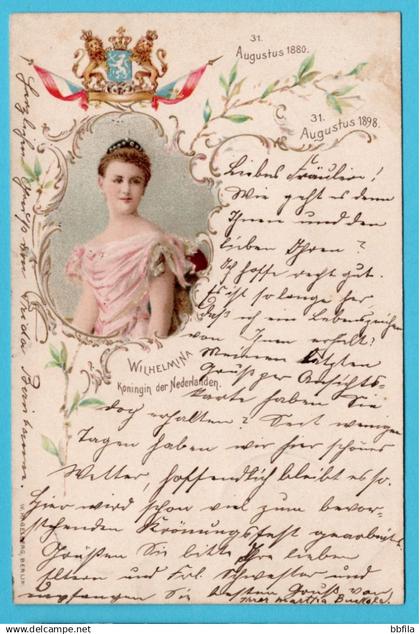 31.
Augustus 1880.
31.
Augustus 1898.
WILHELMINA
Koningin der Nederlanden.
Liebes Fräulein!
Wie geht es denn
Ihnen und den
lieben Ihren?
Ich hoffe recht gut.
Es ist so lange her
daß ich ein Lebenszeichen
von Ihnen erhielt?
Meinen letzten
Grüßger Ansichts-
karte haben Sie
doch erhalten? Seit wenigen
Tagen haben wir hier schönes
Wetter, hoffendlich bleibt es so.
Hier wird schon viel zum bevor-
stehenden Krönungsfest gearbeitet.
Grüßen Sie bitte Ihre lieben
Eltern und Frl. Schwester und
empfangen Sie besten Gruß von
Ihrer Martha
W. HAGELBERG, BERLIN.